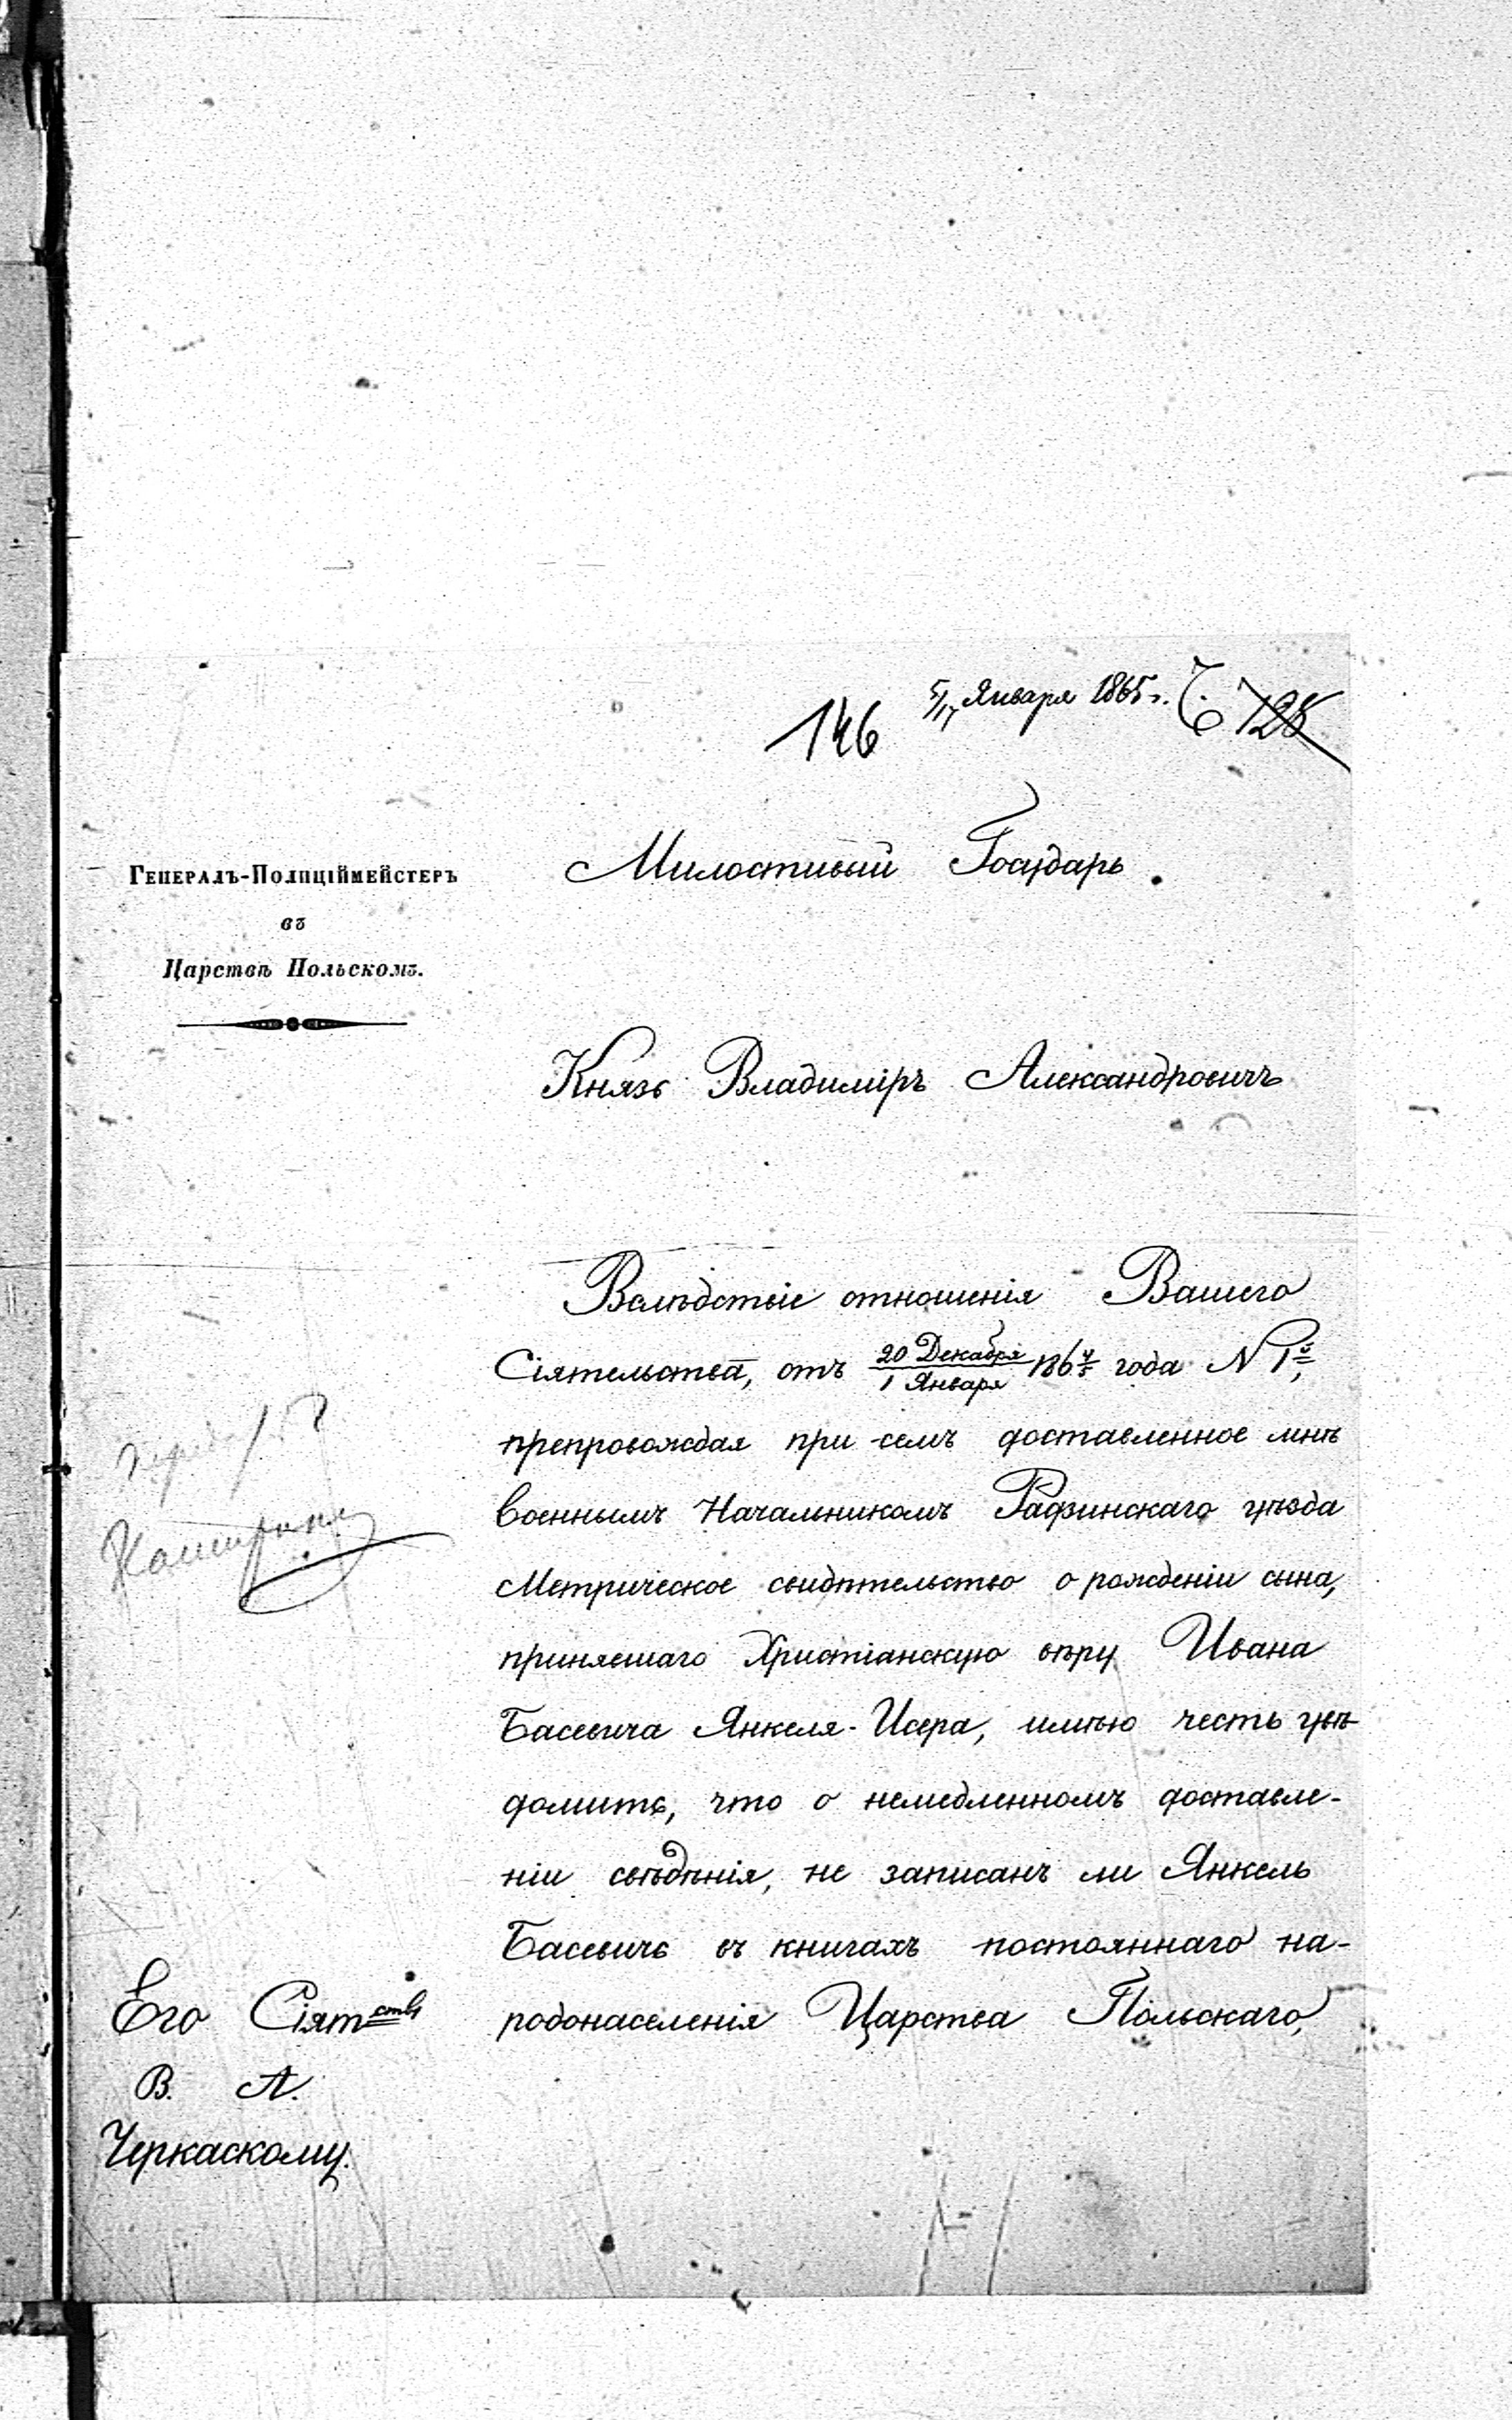 5/17 Января 1865 г.
146
128
Генералъ-Полиціймейстеръ
въ
Царствѣ Польскомъ.
Милостивый Государь.
Князь Владиміръ Александровичъ
Вслѣдствіе отношенія Вашего
Сіятельства, отъ 20 Декабря / 1 Января 1864/5 года N 1й,
препровождая при семъ доставленное мнѣ
военнымъ Начальникомъ Радзинскаго уѣзда
Метрическое свидѣтельство о рожденіи сына,
принявшаго Христіанскую вѣру Ивана
Басевича Янкеля-Исера, имѣю честь увѣ-
домить, что о немедленномъ доставле-
ніи свѣдѣнія, не записанъ ли Янкель
Басевичъ въ книгахъ постояннаго на-
родонаселенія Царства Польскаго,
Его Сіятств
В. А.
Черкаскому.